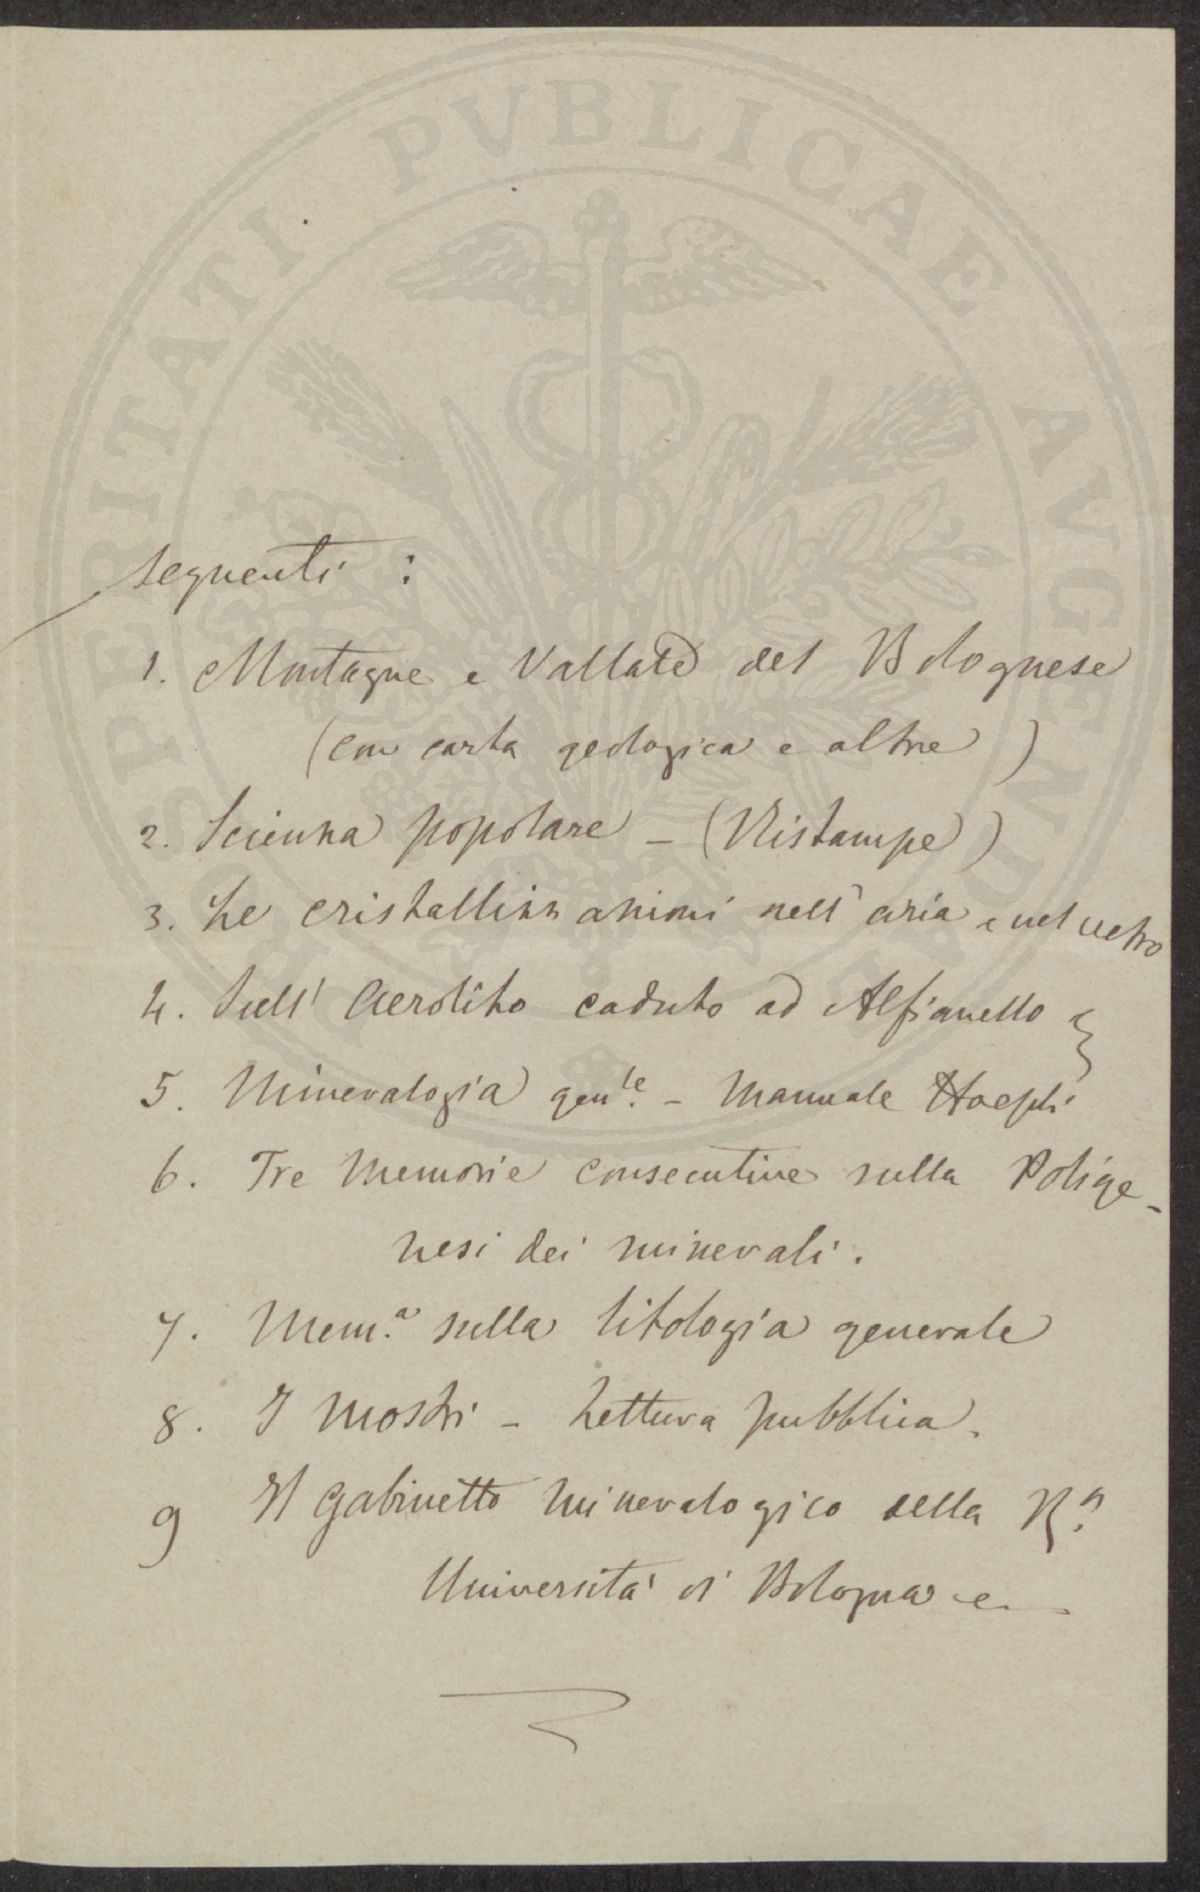 PROSPERITATI PVBLICAE AVGENDAE
seguenti :
1. Montagne e Vallate del Bolognese
(con carta geologica e altre )
2. Scienza popolare - (Ristampe)
3. Le cristallizzazioni nell'aria e nel vetro
4. Sull' Aerolito caduto ad Alfianello
5. Mineralogia gen.le - Manuale Hoepli
6. Tre Memorie consecutive sulla Polige-
nesi dei minerali.
7. Mem.a sulla litologia generale
8. I Mostri - Lettura pubblica.
9 Il Gabinetto Mineralogico della R.a
Università di Bologna